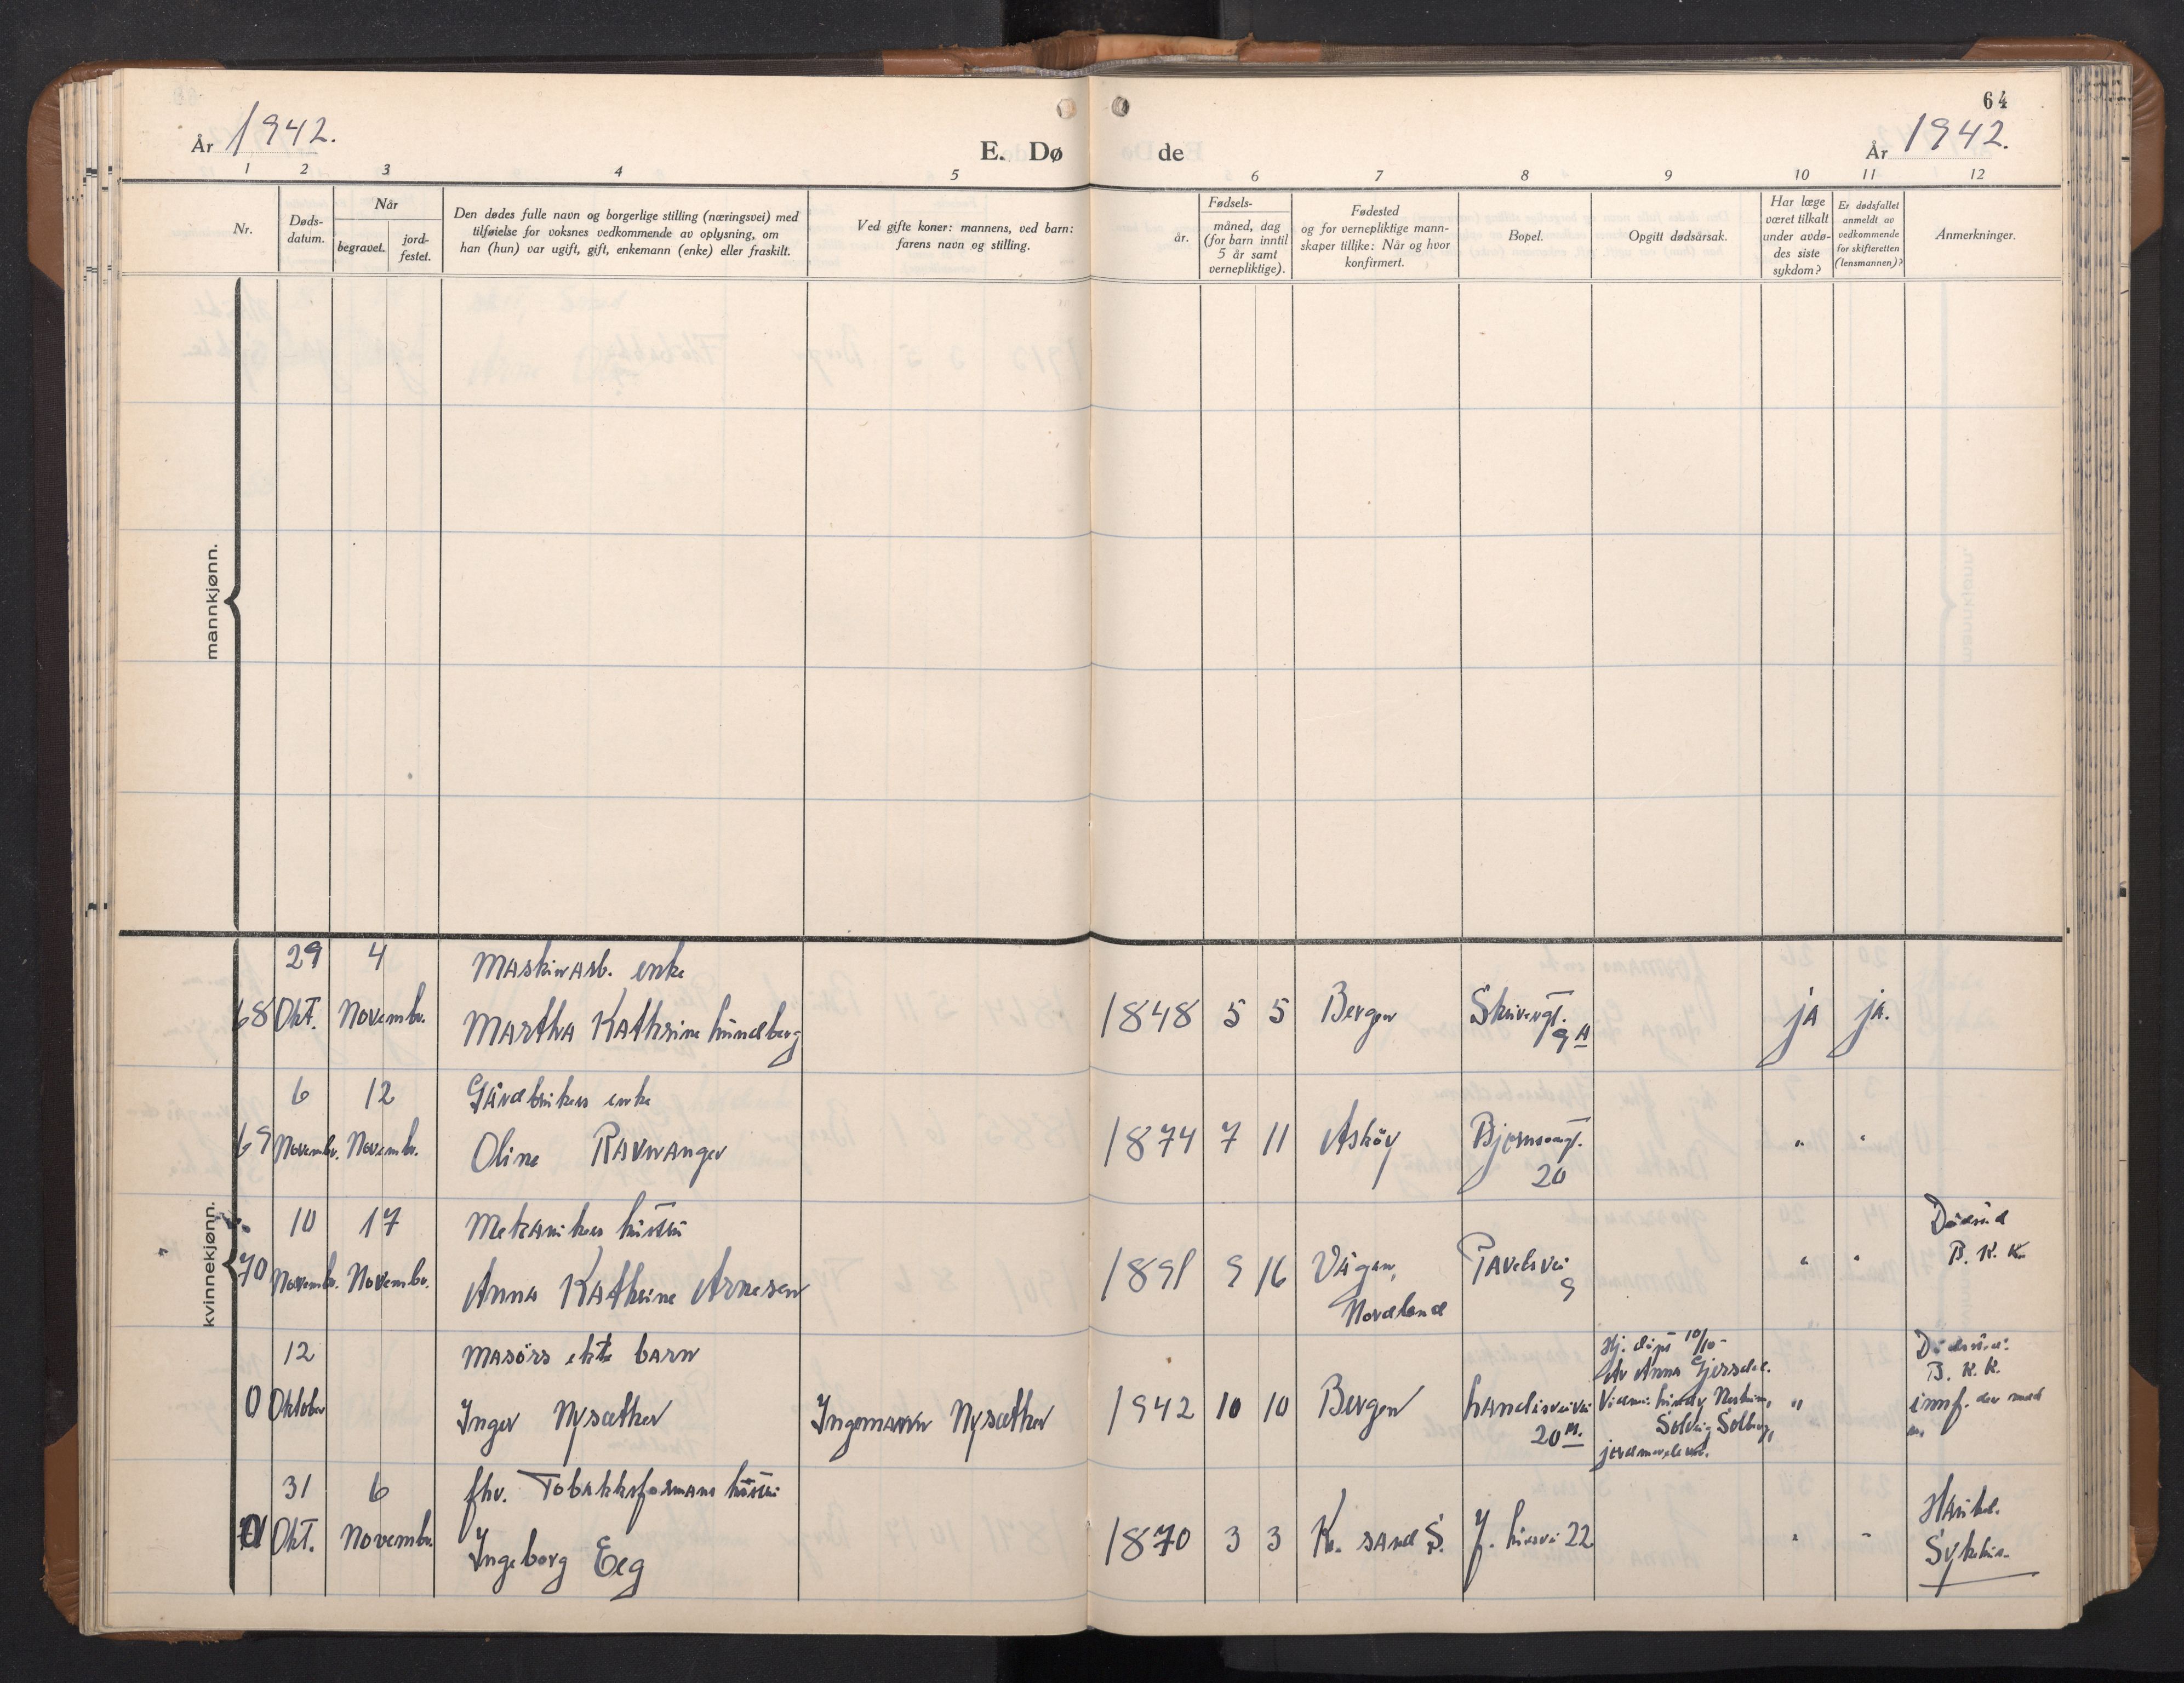 64
År 1942.
E. Dø de
År 1942.
1 2 3 4 5 6 7 8 9 10 11 12
Nr.
Døds-
datum.
Når
begravet.
jord-
festet.
Den dødes fulle navn og borgerlige stilling (næringsvei) med
tilføielse for voksnes vedkommende av oplysning, om
han (hun) var ugift, gift, enkemann (enke) eller fraskilt.
Ved gifte koner: mannens, ved barn:
farens navn og stilling.
år.
Fødsels-
måned, dag
(for barn inntil
5 år samt
vernepliktige).
Fødested
og for vernepliktige mann-
skaper tillike: Når og hvor
konfirmert.
Bopel.
Opgitt dødsårsak.
Har læge
været tilkalt
under avdø-
des siste
sykdom?
Er dødsfallet
anmeldt av
vedkommende
for skifteretten
(lensmannen)?
Anmerkninger.
mannkjønn.
kvinnekjønn.
29 4 Maskinarb. enke
68 Okt. Novembr. Martha Kathrine Lundberg 1848 5 5 Bergen Skivergt. ja ja.
9 A
6 12 Gårdbrukers enke
69 Novembr. Novembr. Oline Ravnanger 1874 7 11 Askøy Bjørnsongt. " "
20
10 17 Mekanikers hustru
70 Novembr. Novembr. Anna Kathrine Arnesen 1891 9 16 Vågan, Pavelsvei " "
Nordland 9
Døds.
B. K. K.
12 Masørs ekte barn
0 Oktober Inger Nysæther Ingemann Nysæther 1942 10 10 Bergen
20 M.
Hj. døpt 10/10
Av Anna Gjersdal.
Solveig Solberg,
"
B. K. K.
innf. der med
31 6 fhv. Tobakksformans hustru
Okt. Novembr. Ingeborg Eeg 1870 3 3 Kr. sand S. 22 " "
Haukel.
Sykehus.